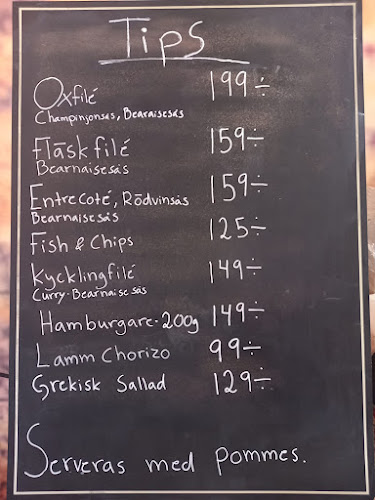 Tips
Oxfilé 199:-
Champinjonsås, Bearaisesås
Fläskfilé 159:-
Bearnaisesås
Entrecoté, Rödvinsås 159:-
Bearnaisesås
Fish & Chips 125:-
Kycklingfilé 149:-
Curry-Bearnaisesås
Hamburgare-200g 149:-
Lamm Chorizo 99:-
Grekisk Sallad 129:-
Serveras med pommes.